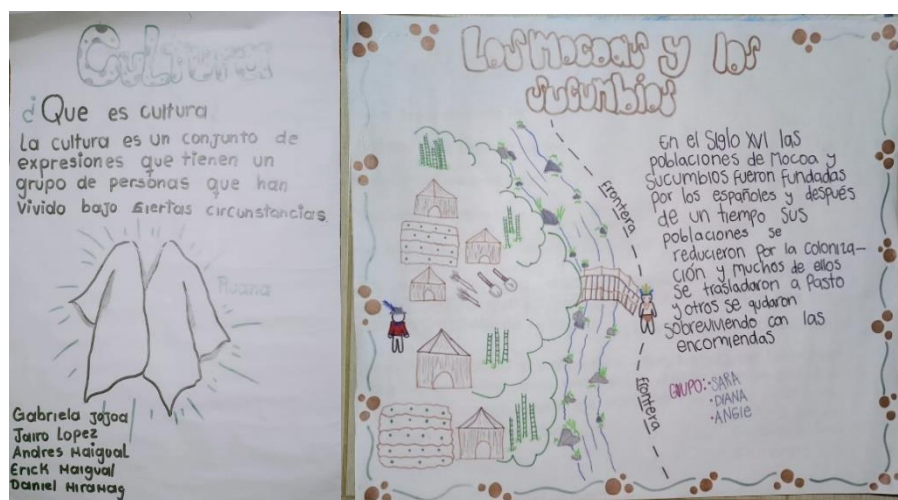 Cultura
¿Que es cultura
La cultura es un conjunto de
expresiones que tienen un
grupo de personas que han
vivido bajo siertas circunstancias
Ruana
Gabriela Jojoa
Jairo Lopez
Andres Maigual
Erick Maigual
Daniel
Los Mocoas y los
sucumbios
frontera
frontera
En el siglo XVI las
poblaciones de Mocoa y
sucumbios fueron fundadas
por los españoles y después
de un tiempo sus
poblaciones se
redujeron por la coloniza-
ción y muchos de ellos
se trasladaron a Pasto
y otros se qudaron
sobreviviendo con las
encomiendas
GRUPO: •SARA
•DIANA
•ANGIE